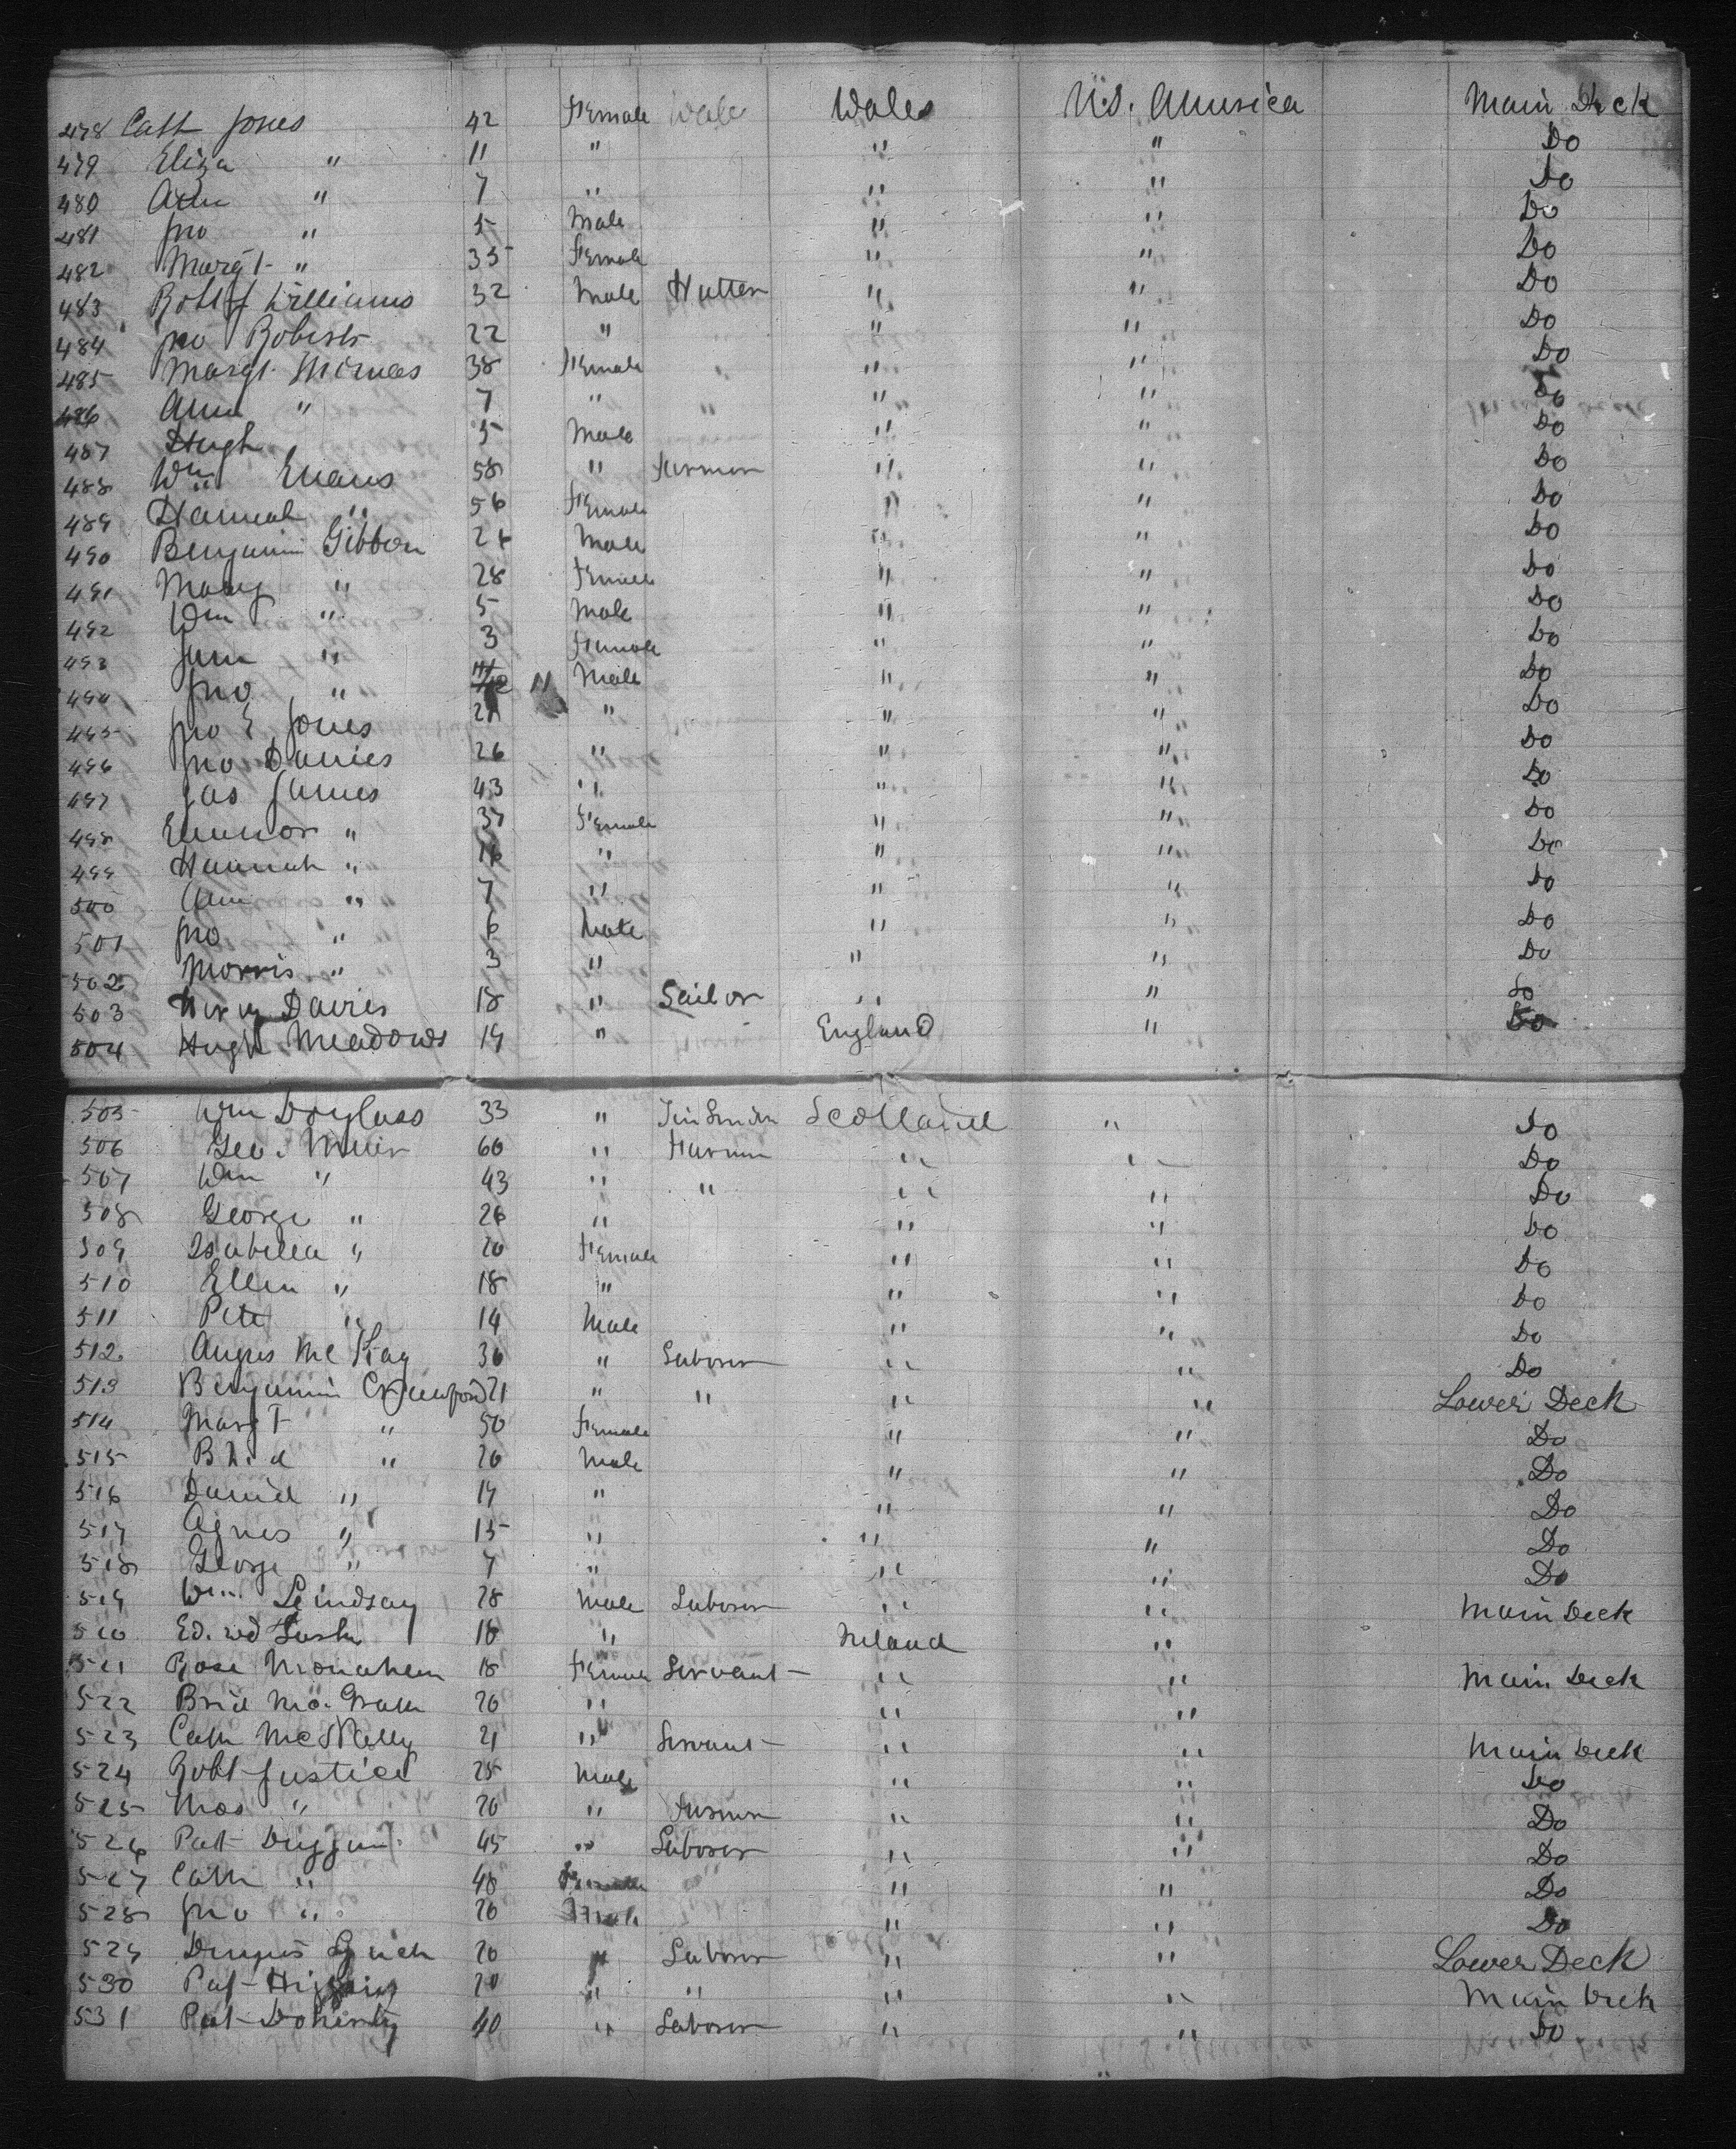 478 Cath Jones 42 Female Wales Wales U.S. America Main Deck
479 Eliza " 11 " " " Do
480 Ann " 7 " " " Do
481 Jno " 5 Male " " Do
482 Margt " 35 Female " " Do
483 Robt Williams 32 Male Hatter " " Do
484 Jno Roberts 22 " " " Do
485 Margt Thomas 38 Female " " Do
486 Ann " 7 " " " Do
487 Hugh 5 Male " " Do
488 Wm Evans 58 " Farmer " " Do
489 Hannah " 56 Female " " Do
490 Benjamin Gibbon 24 Male " " Do
491 Mary " 28 Female " " Do
492 Wm " 5 Male " " Do
493 Jane " 3 Female " " Do
494 Jno " 11 Male " " Do
495 Jno E Jones 21 " " " Do
496 Jno Davies 26 " " " Do
497 Jas James 43 " " " Do
498 Eleanor " 37 Female " " Do
499 Hannah " 16 " " " Do
500 Ann " 7 " " " Do
501 Jno " 6 Male " " Do
502 Morris " 3 " " " Do
503 Henry Davies 18 " Sailor " " Do
504 Hugh Meadows 19 " England " Do
505 Wm Douglass 33 " Tin Smith Scotland " Do
506 Geo. Muir 60 " Farmer " " Do
507 Wm " 43 " " " " Do
508 George " 26 " " " Do
509 Isabella " 20 Female " " Do
510 Ellen " 18 " " " Do
511 Peter " 14 Male " " Do
512 Angus McKay 36 " Laborer " " Do
513 Benjamin Crawford 21 " " " " Lower Deck
514 Margt " 50 Female " " Do
515 " 20 Male " " Do
516 David " 19 " " " Do
517 Agnes " 15 " " " Do
518 George " 7 " " " Do
519 Wm Lindsay 28 Male Laborer " " Main Deck
520 Ed.wd 18 " Ireland "
521 Rose Monahan 18 Female Servant " " Main Deck
522 Brid McGrath 20 " " "
523 Cath McNally 21 " Servant " " Main Deck
524 Robt Justice 25 Male " " Do
525 Thos " 20 " Farmer " " Do
526 Pat Duggan 45 " Laborer " " Do
527 Cath " 48 Female " " Do
528 Jno " 20 Male " " Do
529 Lynch 20 " Laborer " " Lower Deck
530 Pat Higgins 20 " " " " Main Deck
531 Pat Doherty 40 " Laborer " " Do